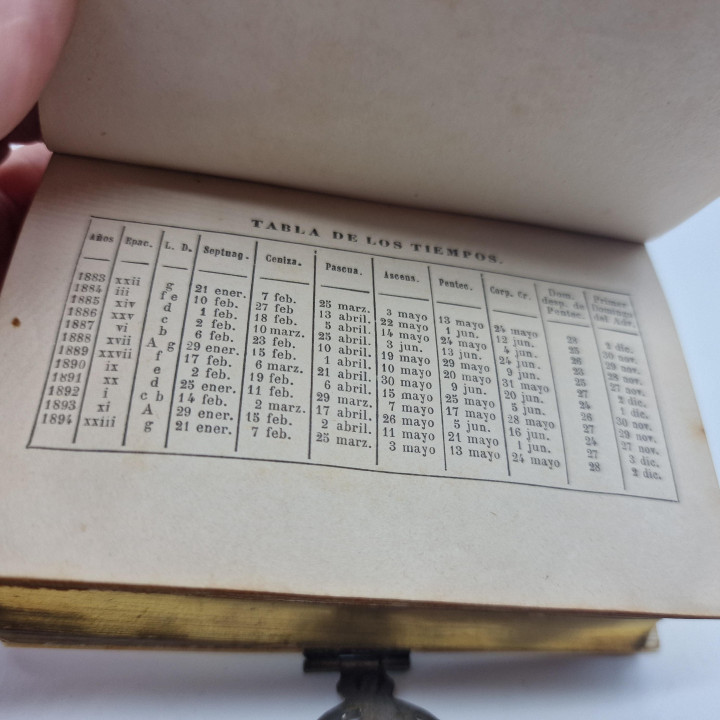 TABLA DE LOS TIEMPOS.
Años Epac. L. D. Septuag. Ceniza. Pascua. Ascens. Pentec. Corp. Cr. Dom. desp. de Pentec. Primer Domingo del Adv.
1883 xxii g 21 ener. 7 feb. 25 marz. 3 mayo 13 mayo 24 mayo 28 2 dic.
1884 iii f e 10 feb. 27 feb 13 abril. 22 mayo 1 jun. 12 jun. 25 30 nov.
1885 xiv d 1 feb. 18 feb. 5 abril. 14 mayo 24 mayo 4 jun. 26 29 nov.
1886 xxv c 2 feb. 10 marz. 25 abril. 3 jun. 13 jun. 24 jun. 23 28 nov.
1887 vi b 6 feb. 23 feb. 10 abril. 19 mayo 29 mayo 9 jun. 25 27 nov.
1888 xvii A g 29 ener. 15 feb. 1 abril. 10 mayo 20 mayo 31 mayo 27 2 dic.
1889 xxvii f 17 feb. 6 marz. 21 abril. 30 mayo 9 jun. 20 jun. 24 1 dic.
1890 ix e 2 feb. 19 feb. 6 abril. 15 mayo 25 mayo 5 jun. 26 30 nov.
1891 xx d 25 ener. 11 feb. 29 marz. 7 mayo 17 mayo 28 mayo 27 29 nov.
1892 i c b 14 feb. 2 marz. 17 abril. 26 mayo 5 jun. 16 jun. 24 27 nov.
1893 xi A 29 ener. 15 feb. 2 abril. 11 mayo 21 mayo 1 jun. 27 3 dic.
1894 xxiii g 21 ener. 7 feb. 25 marz. 3 mayo 13 mayo 24 mayo 28 2 dic.